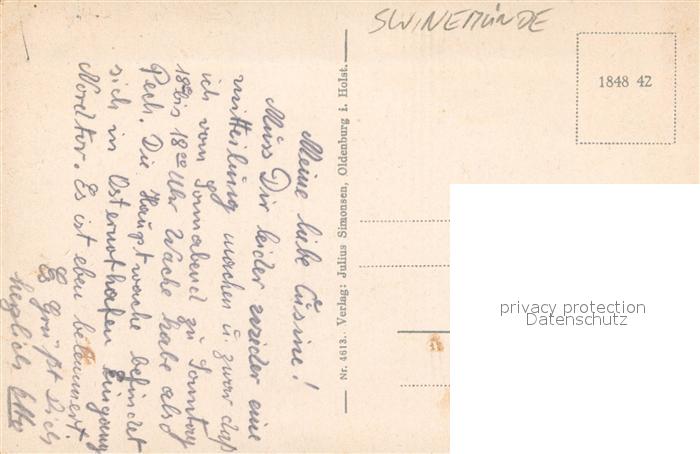 SWINEMÜNDE
1848 42
Meine liebe Cusine!
Muss Dir leider wieder eine
mitteilung machen u. zwar daß
ich vom Sonnabend zu Sonntag
18 bis 18 Uhr Wache habe also
Pech. Die Hauptwache befindet
sich in Osternothafen Eingang
Nordtor. Es ist eben belämmert.
Es Grüßt Dich
herzlich Otto
Nr. 4613. Verlag: Julius Simonsen, Oldenburg i. Holst.
privacy protection
Datenschutz